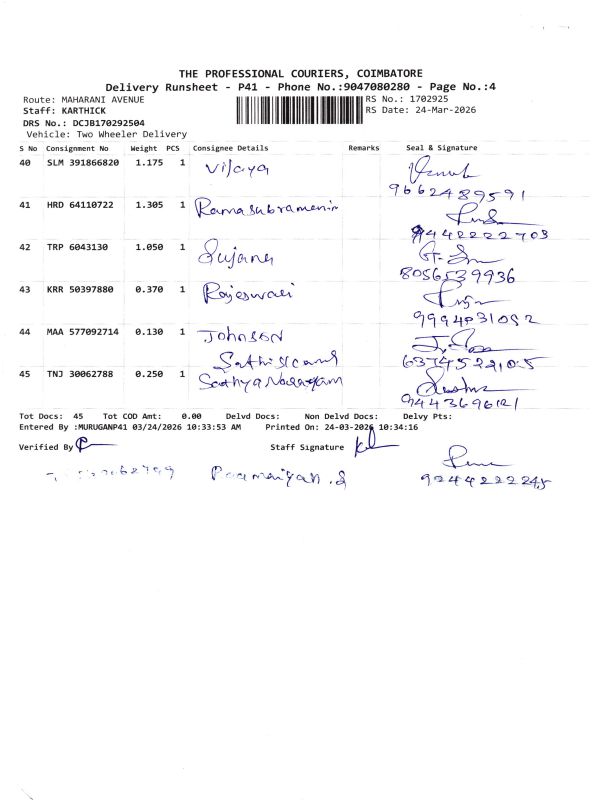 THE PROFESSIONAL COURIERS, COIMBATORE
Delivery Runsheet - P41 - Phone No.:9047080280 - Page No.:4
Route: MAHARANI AVENUE RS No.: 1702925
Staff: KARTHICK RS Date: 24-Mar-2026
DRS No.: DCJB170292504
Vehicle: Two Wheeler Delivery
S No Consignment No Weight PCS Consignee Details Remarks Seal & Signature
40 SLM 391866820 1.175 1 Vijaya
9662489591
41 HRD 64110722 1.305 1 Ramasubramanin
9442222703
42 TRP 6043130 1.050 1 Sujana
8056539936
43 KRR 50397880 0.370 1 Rajeswari
44 MAA 577092714 0.130 1 Johnson
45 TNJ 30062788 0.250 1
Tot Docs: 45 Tot COD Amt: 0.00 Delvd Docs: Non Delvd Docs: Delvy Pts:
Entered By :MURUGANP41 03/24/2026 10:33:53 AM Printed On: 24-03-2026 10:34:16
Verified By Staff Signature